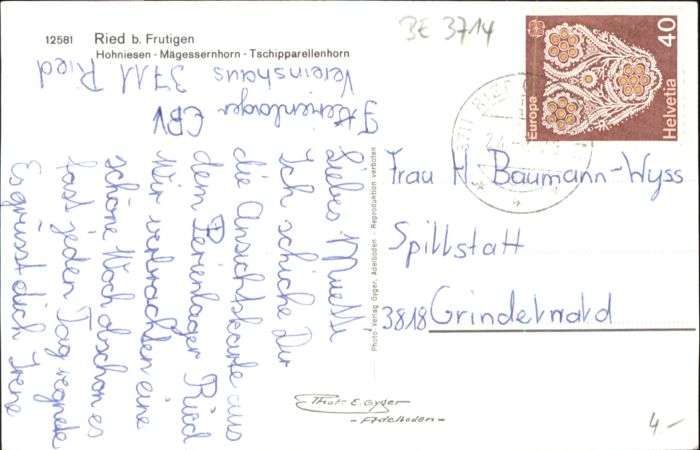 12581 Ried b. Frutigen
Hohniesen - Mägessernhorn - Tschipparellenhorn
BE 3714
Ferienlager CBV
Vereinshaus 3711 Ried
Liebes Muetti
Ich schicke Dir
die Ansichtskarte aus
dem Ferienlager Ried
Wir verbrachten eine
schöne Woch obschon es
fast jeden Tag regnete
Es grüsst dich Irene
Photo Verlag Gyger, Adelboden - Reproduktion verboten
Europa
Helvetia
40
Frau H. Baumann-Wyss
Spillstatt
3818 Grindelwald
Phot. E. Gyger
- Adelboden -
4.-